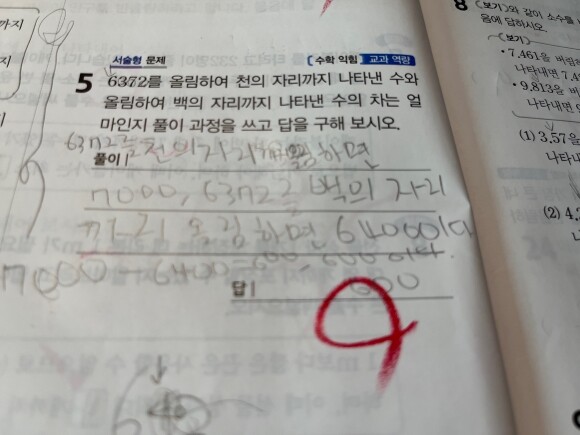 까지
지
서술형 문제 [수학 익힘] 교과 역량
5 6372를 올림하여 천의 자리까지 나타낸 수와
올림하여 백의 자리까지 나타낸 수의 차는 얼
마인지 풀이 과정을 쓰고 답을 구해 보시오.
6372를 천의 자리까지 올림하면
풀이
7000, 6372를 백의 자리
까지 올림하면 6400이다
7000-6400=600 600이다.
답 600
8 <보기>와 같이 소수를
음에 답하시오.
<보기>
• 7.461을 버림
나타내면 7.4
• 9.813을 버림
나타내면
(1) 3.57을
나타내
(2) 4.